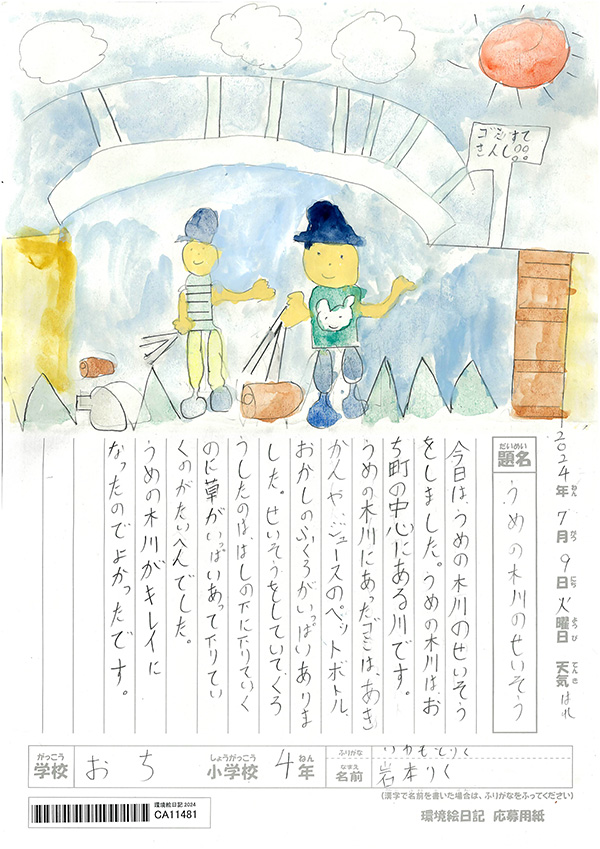 ゴミすて
さんし。。
2024年ねん 7月がつ 9日にち 火曜日ようび 天気てんき はれ
題名だいめい うめの木川のせいそう
今日は、うめの木川のせいそう
をしました。うめの木川は、お
ち町の中心にある川です。
うめの木川にあったゴミは、あき
かんや、ジュースのペットボトル、
おかしのふくろがいっぱいありま
した。せいそうをしていてくろ
うしたのは、はしの下に下りていく
のに草がいっぱいあって下りてい
くのがたいへんでした。
うめの木川がキレイに
なったのでよかったです。
がっこう 学校 おち しょうがっこう 小学校 4年ねん
ふりがな いわもとりく
なまえ 名前 岩本りく
(漢字で名前を書いた場合は、ふりがなをふってください)
環境絵日記 応募用紙
環境絵日記 2024
CA11481